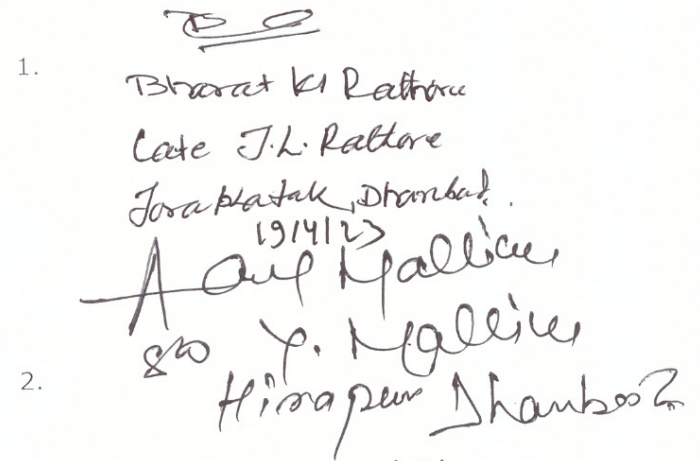 1.
Bharat Kr Rathore
Late J.L. Rathore
Joraphatak, Dhanbad.
19/4/23
Mallick
S/o Y. Mallick
2.
Hirapur Dhanbad